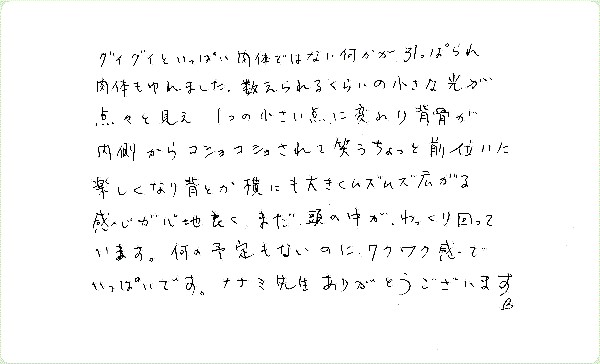 グイグイといっぱい肉体ではない何かが、引っぱられ
肉体もゆれました。数えられるくらいの小さな光が
点々と見え 1つの小さい点に変わり背骨が
内側からコショコショされて笑うちょっと前位いに
楽しくなり背とか横にも大きくムズムズ広がる
感じが心地良く、まだ、頭の中が、ゆっくり回って
います。何の予定もないのに、ワクワク感で
いっぱいです。ナナミ先生ありがとうございます
B